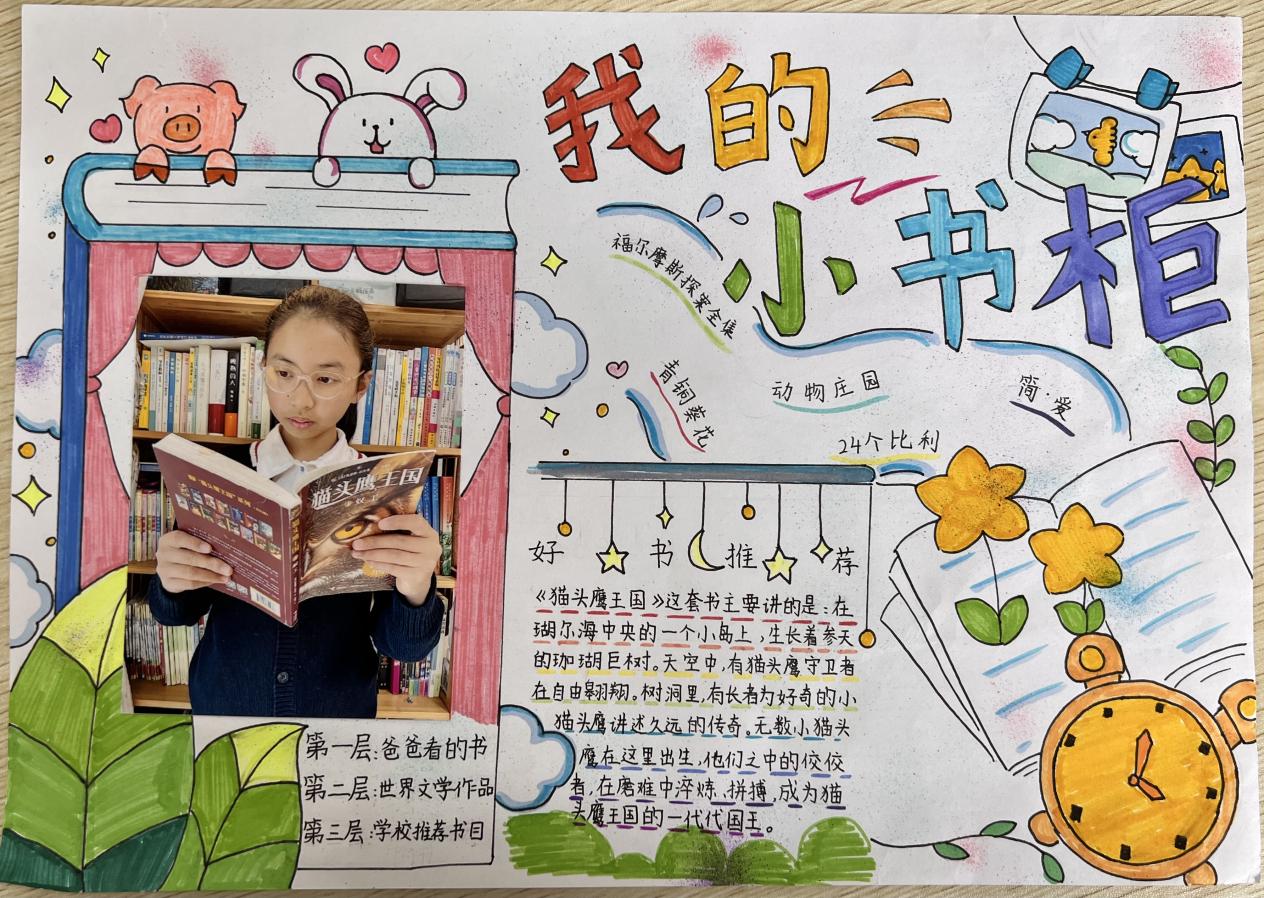 我的
小书柜
福尔摩斯探案全集
青铜葵花
动物庄园
简·爱
24个比利
猫头鹰王国
好书推荐
《猫头鹰王国》这套书主要讲的是:在
瑚尔海中央的一个小岛上,生长着参天
的珈瑚巨树。天空中,有猫头鹰守卫者
在自由翱翔。树洞里,有长者为好奇的小
猫头鹰讲述久远的传奇。无数小猫头
鹰在这里出生,他们之中的佼佼
者,在磨难中淬炼、拼搏,成为猫
头鹰王国的一代代国王。
第一层:爸爸看的书
第二层:世界文学作品
第三层:学校推荐书目